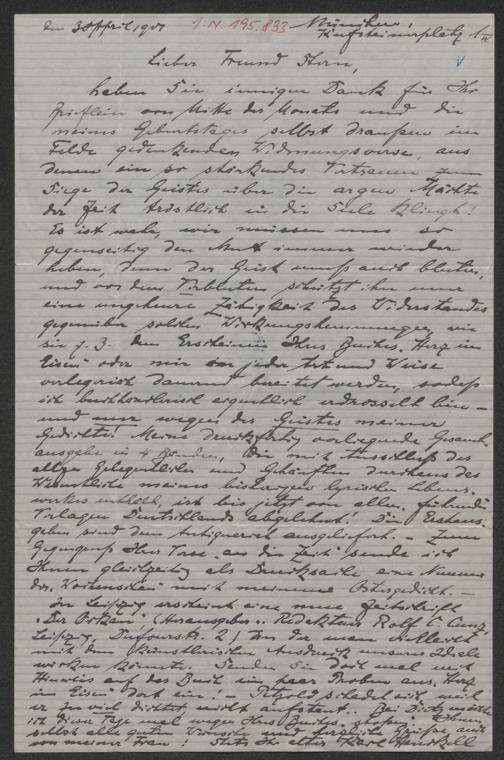 den 30 April 1917 I.N. 195.833 München,
Kufsteinerplatz 1 IV
Lieber Freund Stern,
haben Sie innigen Dank für Ihr
Brieflein von Mitte des Monats und die
meines Geburtstages selbst draußen im
Felde gedenkenden Widmungsverse, aus
denen ein so stärkendes Vertrauen zum
Siege des Geistes über die argen Mächte
der Zeit tröstlich in die Seele klingt!
Es ist wahr, wir müssen uns so
gegenseitig den Mut immer wieder
heben, denn der Geist muß auch bluten,
und vor dem Verbluten schützt ihn nur
eine ungeheure Zähigkeit des Widerstandes
gegenüber solchen Wirkungshemmungen, wie
sie z. B. dem Erscheinen Ihres Buches "Herz im
Eisen" oder mir in jeder Art und Weise
verlegerisch dauernd bereitet werden, sodaß
ich buchhändlerisch eigentlich erdrosselt bin –
und nur wegen des Geistes meiner
Gedichte! Meine druckfertig vorliegende Gesamt-
ausgabe in 4 Bänden, die mit Ausschluß des
allzu Gelegentlichen und Gehäuften durchaus das
Wesentliche meines bisherigen lyrischen Lebens-
werkes enthält, ist bis jetzt von allen führenden
Verlagen Deutschlands abgelehnt. Die
geben sind dem Antiquariat ausgeliefert. – Zum
Gegengruß Ihres "aus der Zeit" sende ich
Ihnen gleichzeitig als Drucksache eine Nummer
des mit meinem Ostergedicht. –
In Leipzig erscheint eine neue Zeitschrift
"Der Orkan". (Herausgeber u. Redakteur Rolf C. Cunz
Leipzig, Dufourstr. 2) in der man vielleicht
mit dem künstlerischen Ausdruck unserer Ideale
wirken könnte. Senden Sie doch mal mit
Hinweis auf das Buch ein paar Proben aus "Herz
im Eisen" dort ein! – Petzold schadet sich, weil
er zu viel dichtet nicht Bei Dietz möchte
ich diese Tage mal wegen Ihres Buches Ihnen
selbst alle guten Wünsche und herzliche Grüße, auch
von meiner Frau! Stets Ihr alter Karl Henckell